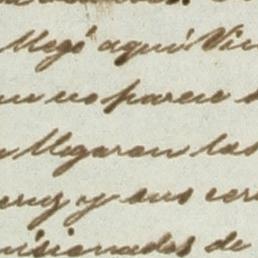 llegó aquí Vic
no paren
llegaron las
y sus cer
misionados de